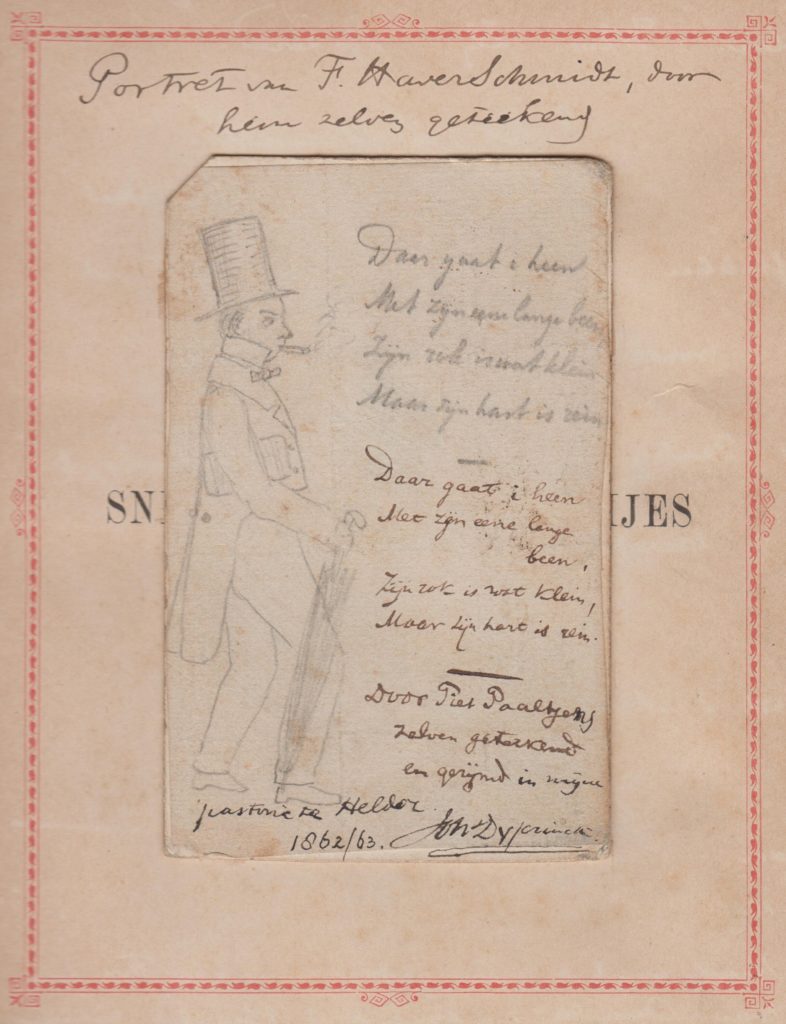 Portret van F. HaverSchmidt, door
hem zelven geteekend
Daar gaat i heen
Met zijn eene lange been,
Zijn rok is wat klein
Maar zijn hart is rein
Daar gaat i heen
Met zijn eene lange
been,
Zijn rok is wat klein,
Maar zijn hart is rein.
SN
IJES
Door Piet Paaltjens
zelven geteekend
en gerijmd in mijne
pastorie te Helder.
1862/63.